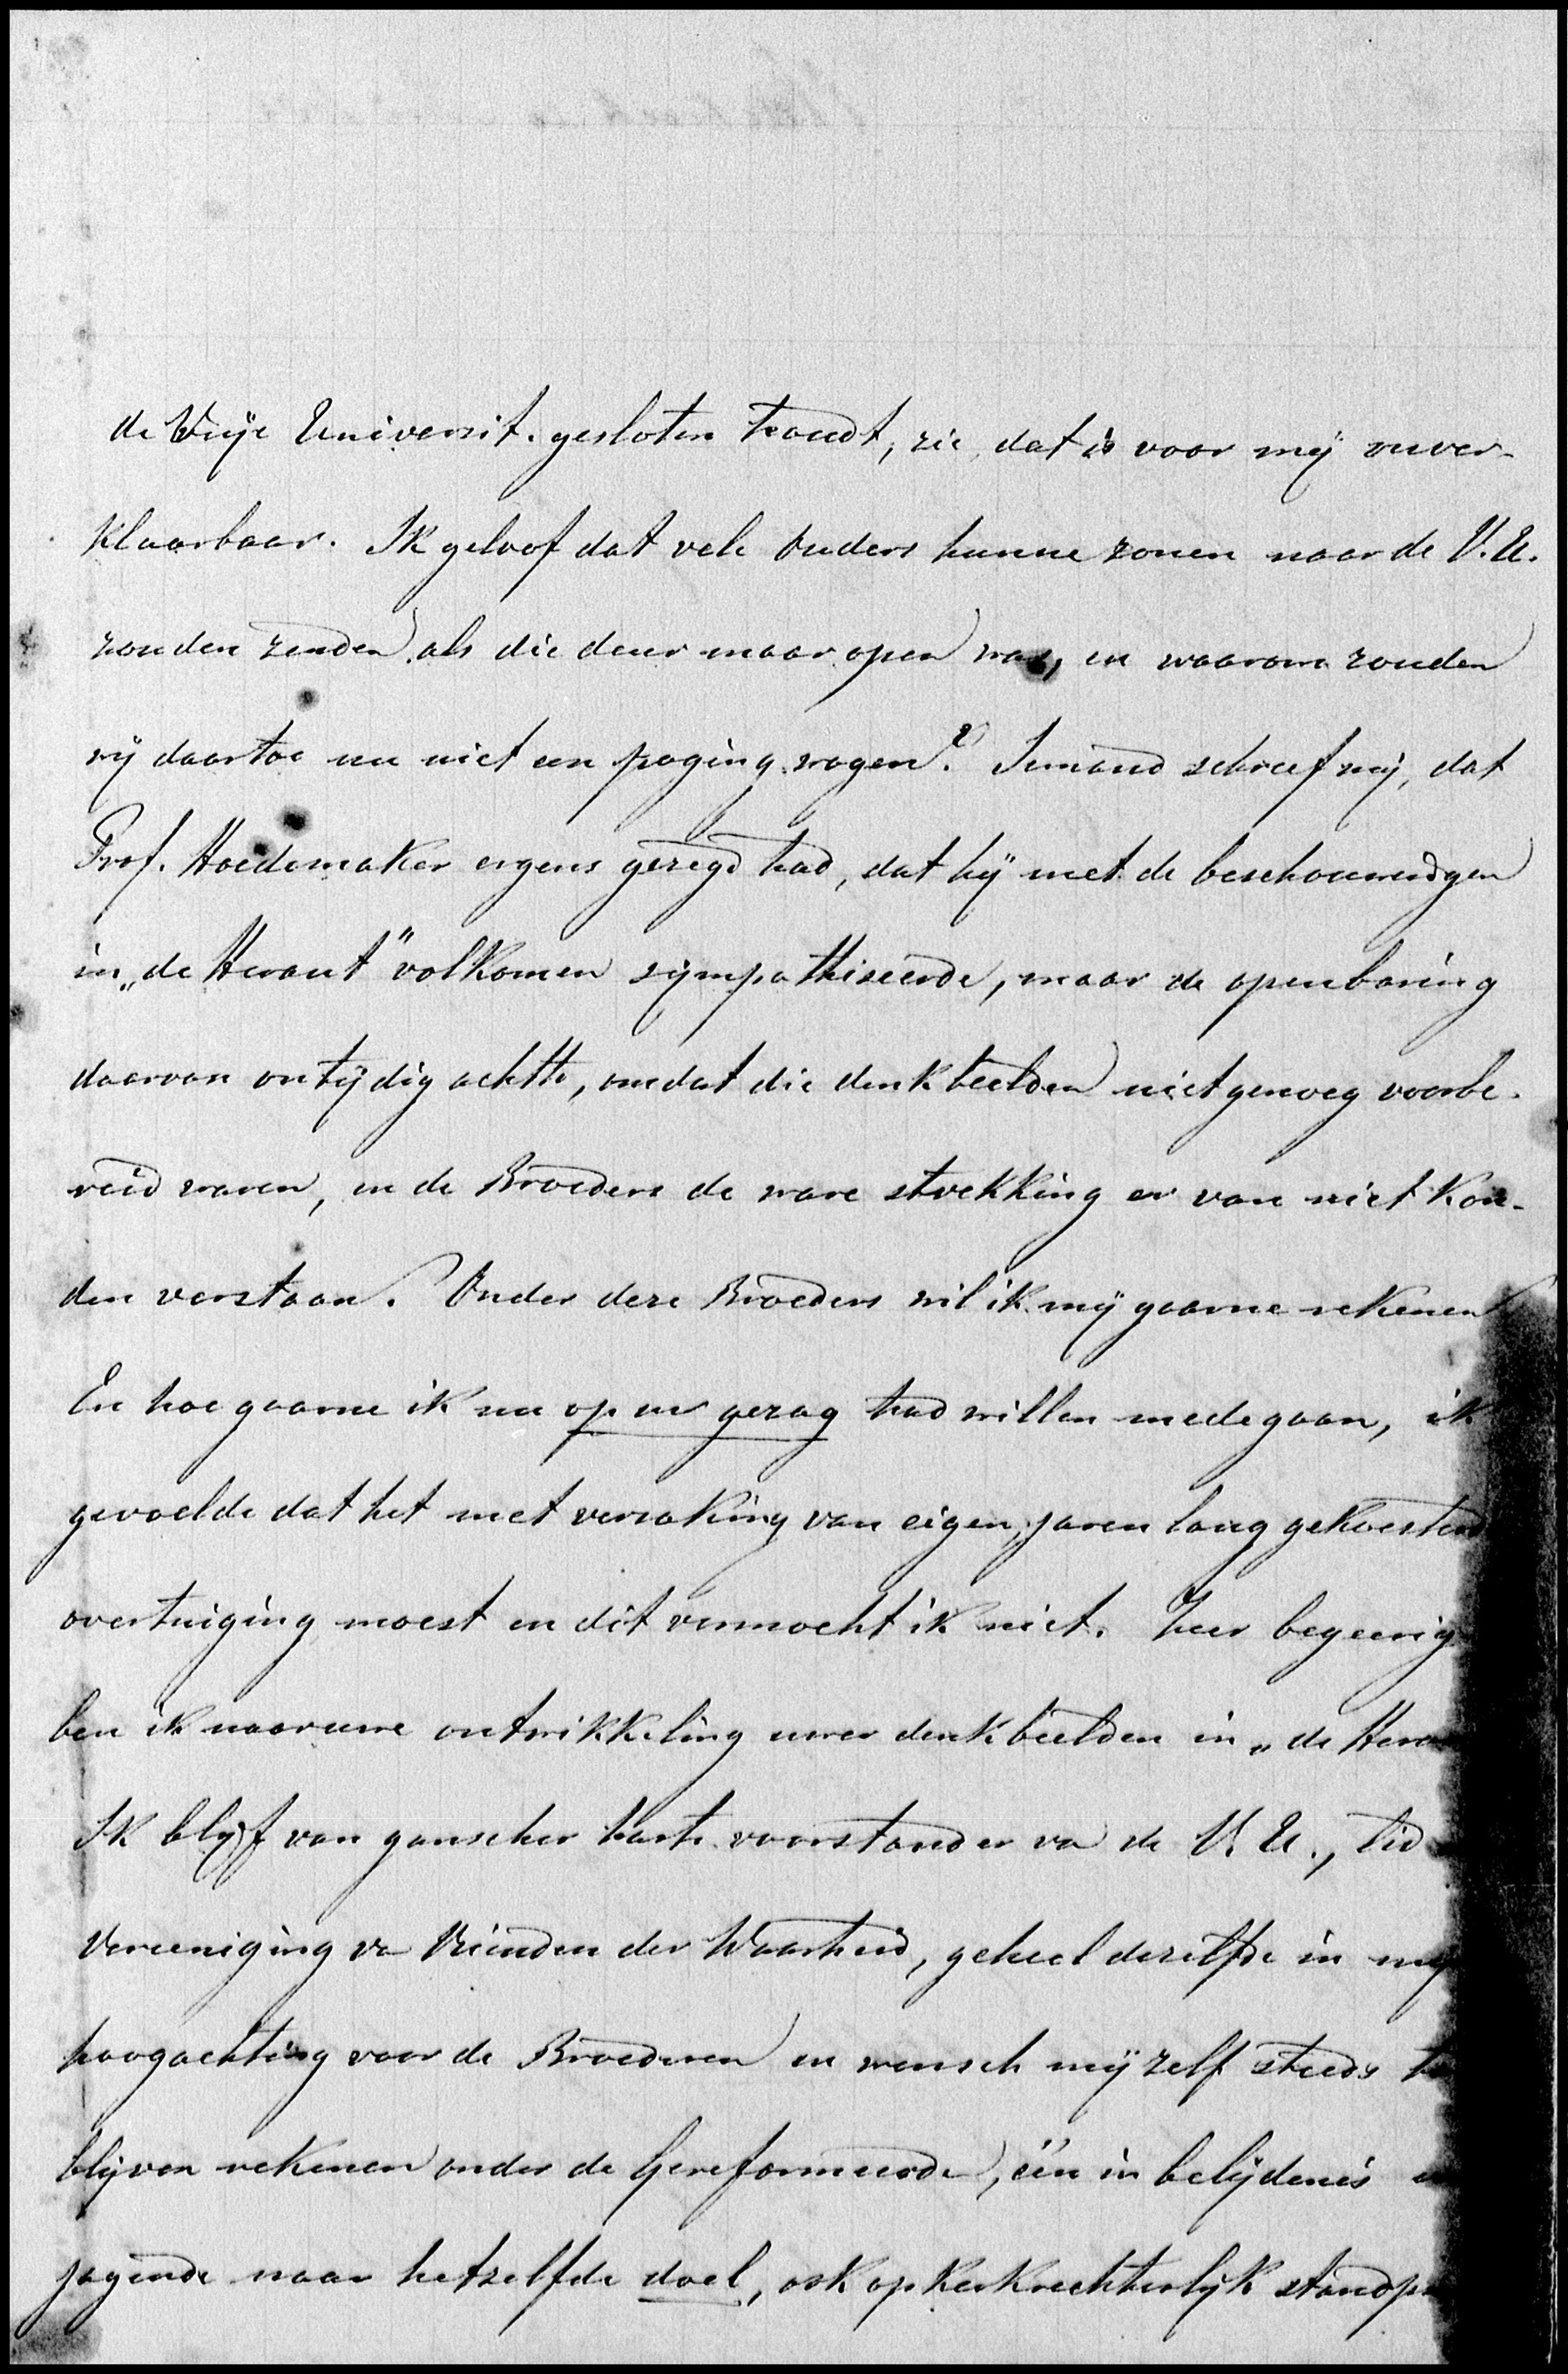 de Vrije Universit. gesloten houdt, zie, dat is voor mij onver-
klaarbaar. Ik geloof dat vele Ouders hunne zonen naar de V.U.
zouden zenden als die deur maar open was, en waarom zouden
wij daartoe nu niet een poging wagen? Iemand schreef mij, dat
Prof. Hoedemaker ergens gezegd had, dat hij met de beschouwingen
in „de Heraut" volkomen sympathiseerde, maar de openbaring
daarvan ontijdig achtte, omdat die denkbeelden niet genoeg voorbe-
reid waren, en de Broeders de ware strekking er van niet kon-
den verstaan. Onder deze Broeders wil ik mij gaarne rekenen
En hoe gaarne ik nu op uw gezag had willen medegaan, ik
gevoelde dat het met verzaking van eigen, jaren lang gekoesterd
overtuiging moest en dit vermocht ik niet. Zeer begeerig
ben ik naar uwe ontwikkeling uwer denkbeelden in „de Hera
Ik blijf van ganscher harte voorstander va de V.U., Lid
Vereeniging va Vrienden der Waarheid, geheel dezelfde in mij
hoogachting voor de Broederen en wensch mijzelf steeds te
blijven rekenen onder de Gereformeerde, één in belijdenis en
jagende naar hetzelfde doel, ook op Kerkrechterlijk standpu